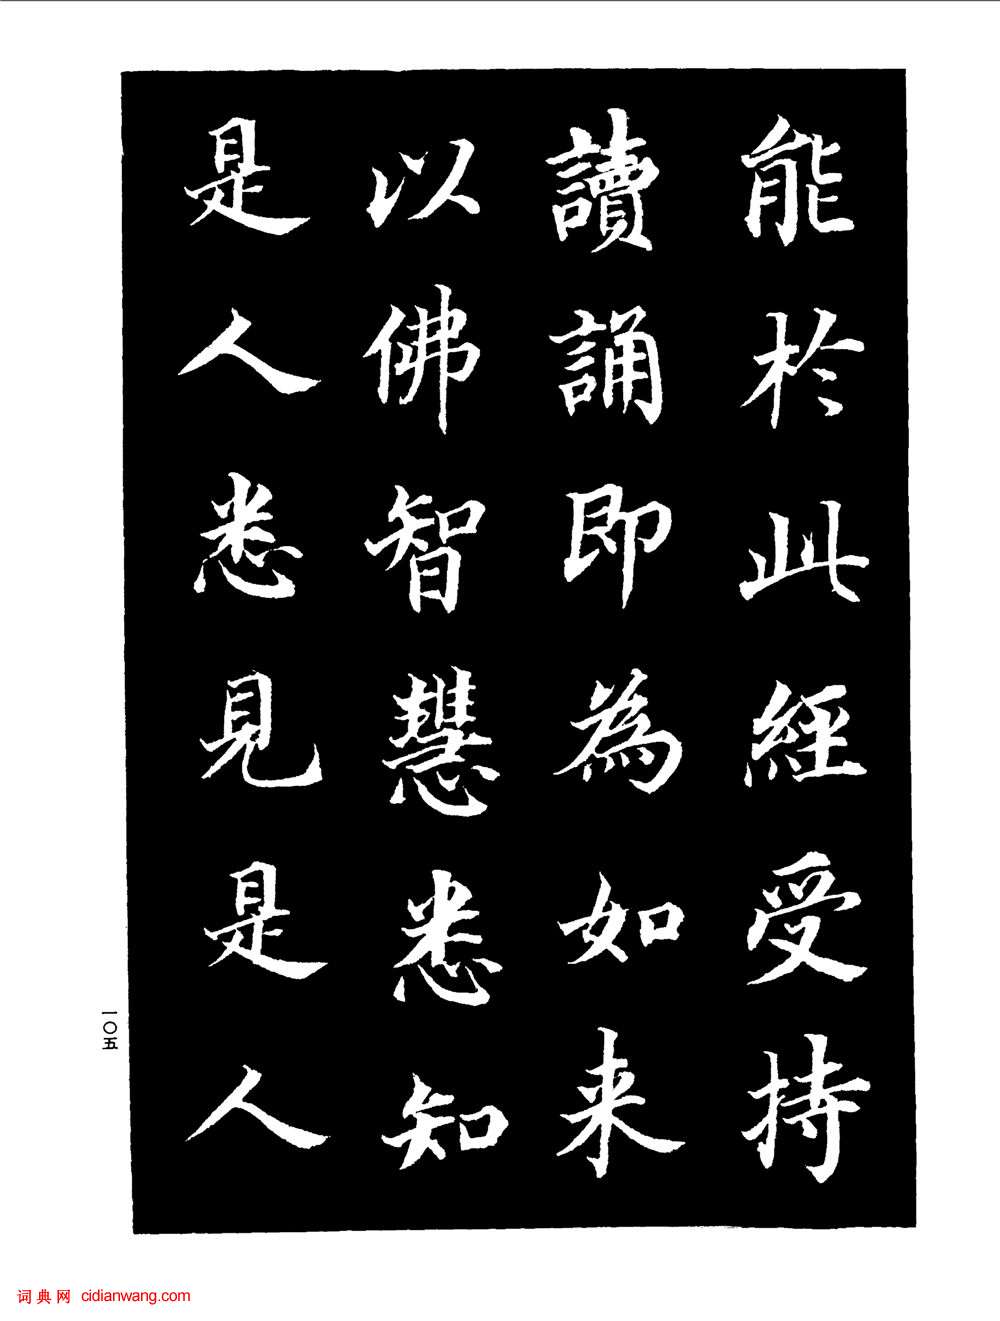 能於此經受持
讀誦即為如来
以佛智慧悉知
是人悉見是人
一〇五
词典网 cidianwang.com